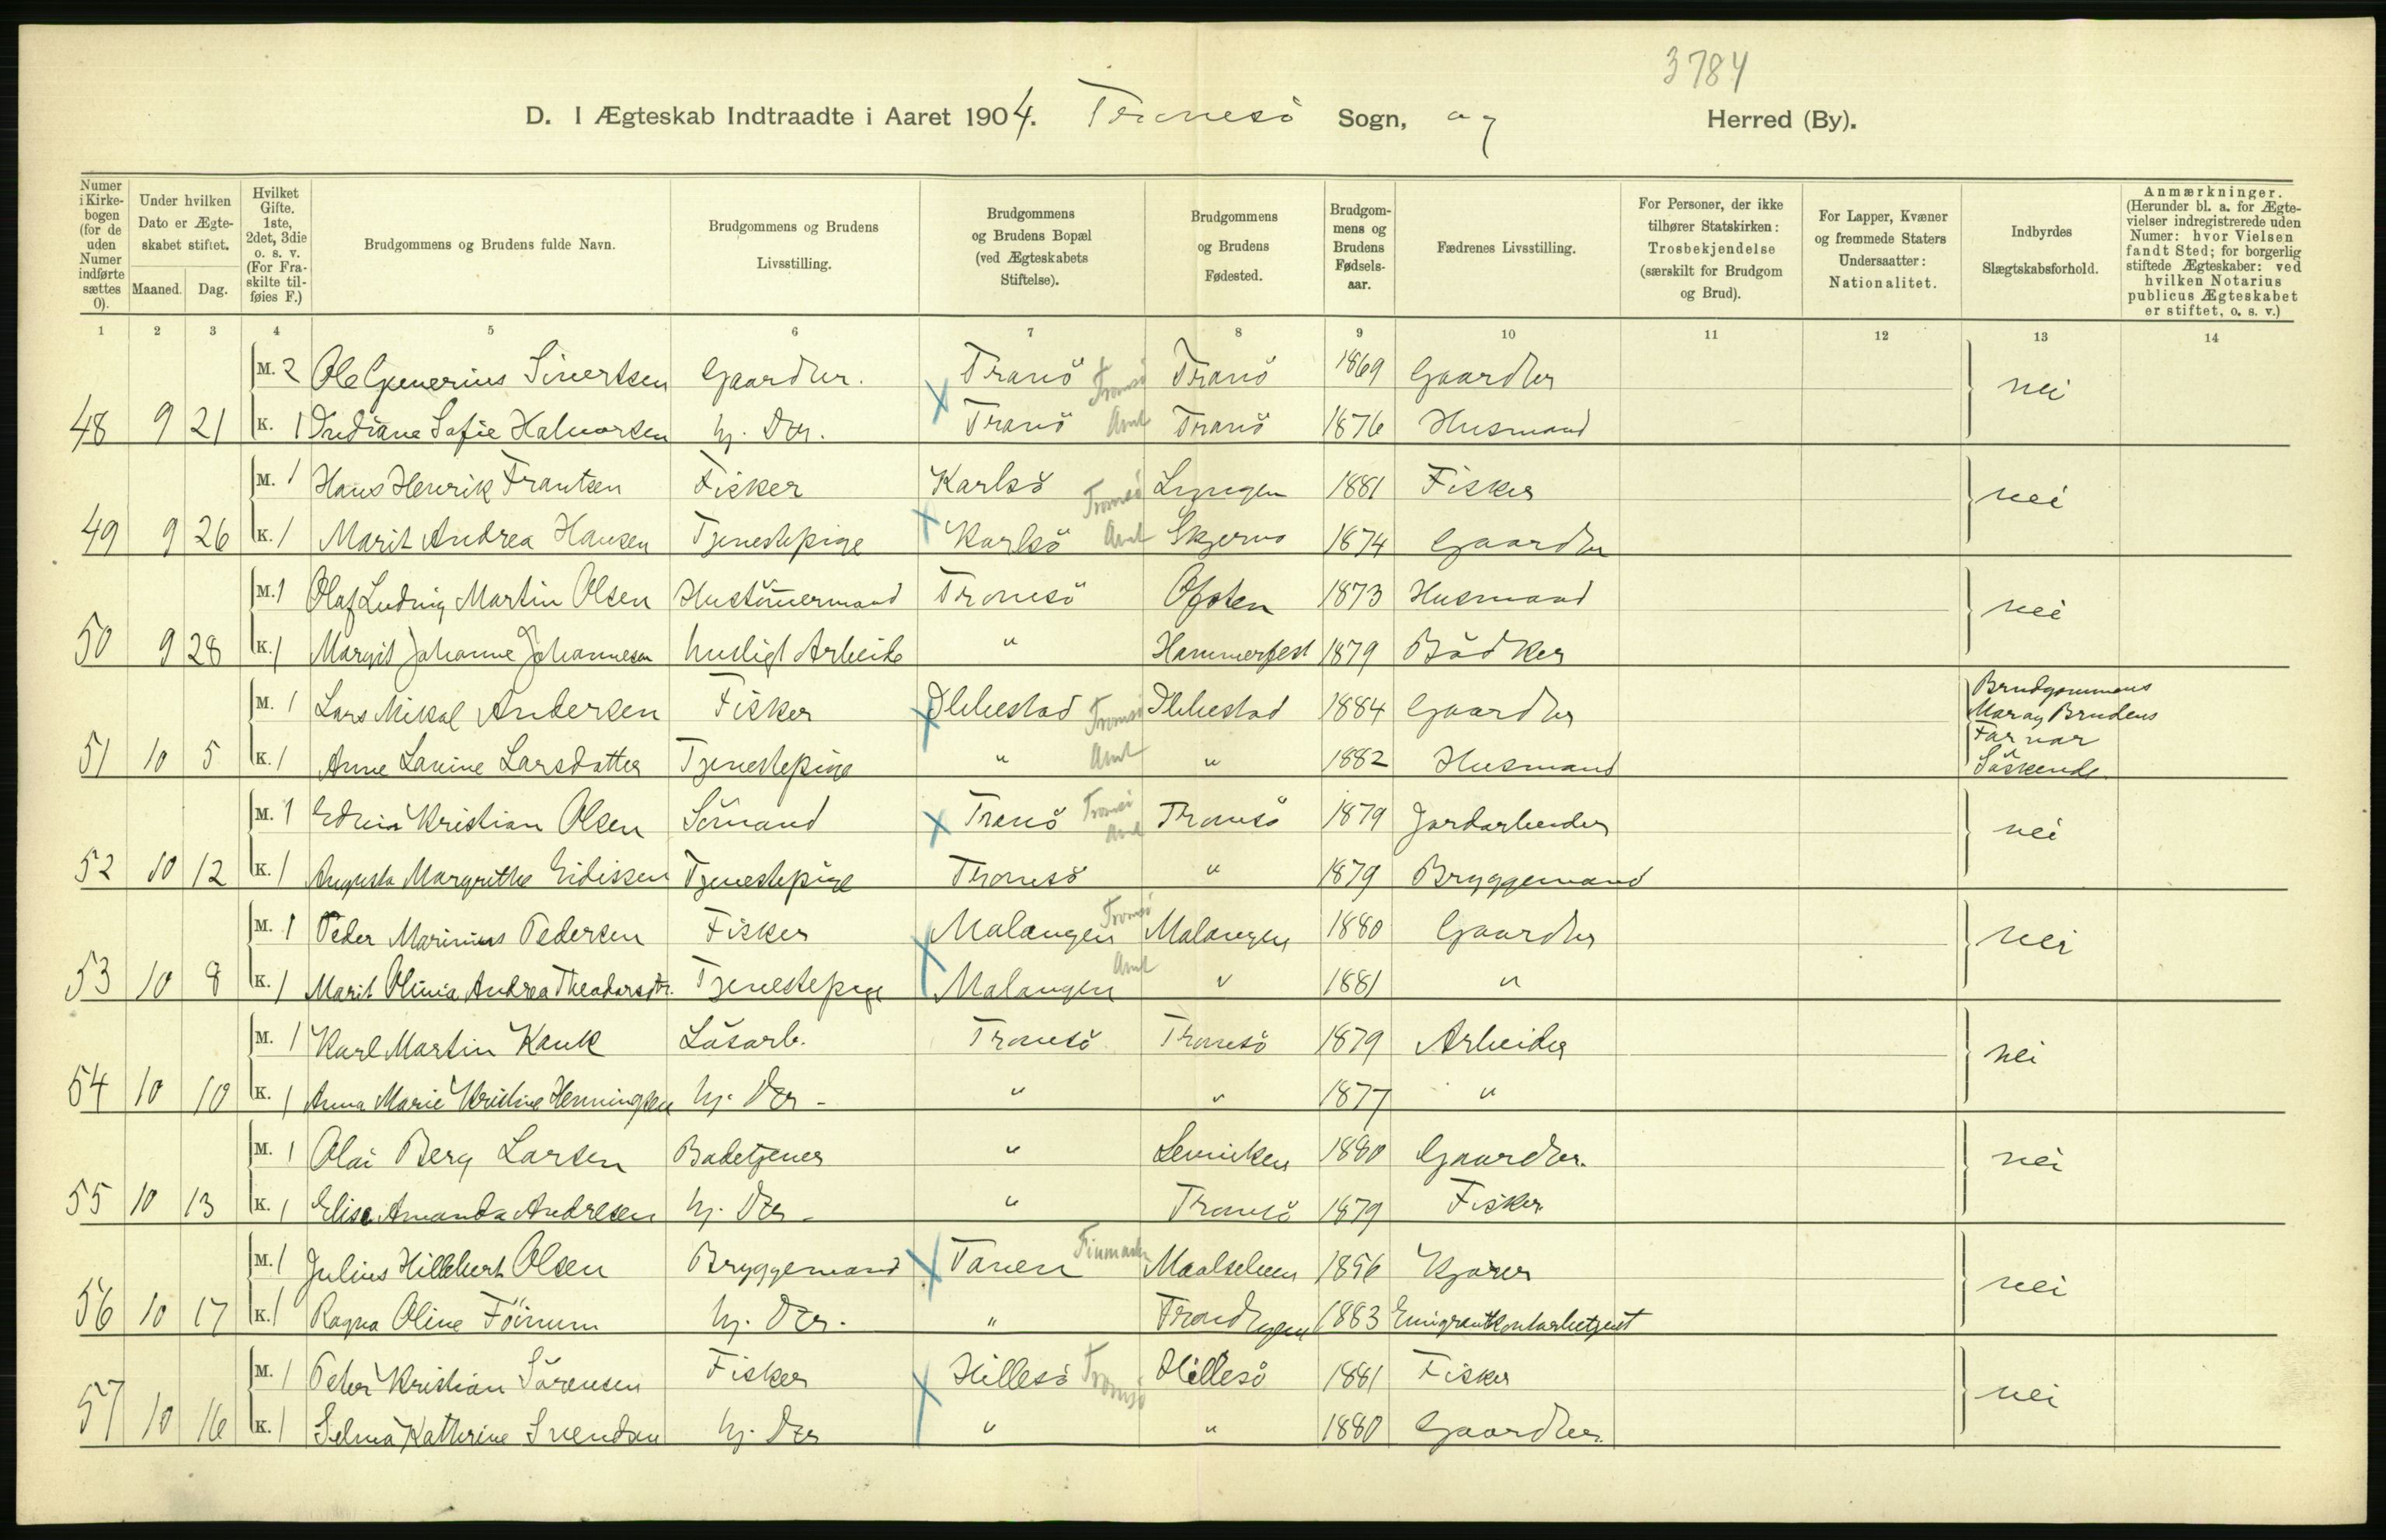 3784
D. I Ægteskab Indtraadte i Aaret 1904. Tromsö Sogn, og Herred (By).
Numer i Kirkebogen (for de uden Numer indførte sættes 0). | Under hvilken Dato er Ægteskabet stiftet. Maaned. Dag. | Hvilket Gifte. 1ste, 2det, 3die o. s. v. (For Fraskilte tilføies F.) | Brudgommens og Brudens fulde Navn. | Brudgommens og Brudens Livsstilling. | Brudgommens og Brudens Bopæl (ved Ægteskabets Stiftelse). | Brudgommens og Brudens Fødested. | Brudgommens og Brudens Fødselsaar. | Fædrenes Livsstilling. | For Personer, der ikke tilhører Statskirken: Trosbekjendelse (særskilt for Brudgom og Brud). | For Lapper, Kvæner og fremmede Staters Undersaatter: Nationalitet. | Indbyrdes Slægtskabsforhold. | Anmærkninger. (Herunder bl. a. for Ægtevielser indregistrerede uden Numer: hvor Vielsen fandt Sted; for borgerlig stiftede Ægteskaber: ved hvilken Notarius publicus Ægteskabet er stiftet, o. s. v.)
1 2 3 4 5 6 7 8 9 10 11 12 13 14
M. 2 Ole Sivertsen Gaardbr. Tranö Tromsö Tranö 1869 Gaardbr nei
48 9 21 K. 1 Indiane Sofie Halvorsen hj. Dtr. Tranö Amt Tranö 1876 Husmand
M. 1 Hans Henrik Frantsen Fisker Karlsö Tromsö Lyngen 1881 Fisker nei
49 9 26 K. 1 Marit Andrea Hansen Tjenestepige Karlsö Amt Skjervö 1874 Gaardbr
M. 1 Olaf Ludvig Martin Olsen Hustömermand Tromsö Ofoten 1873 Husmand nei
50 9 28 K. 1 Margit Johanne Johannesen husligt Arbeide " Hammerfest 1879 Bödker
M. 1 Lars Mikal Andersen Fisker Ibbestad Tromsö Ibbestad 1884 Gaardbr Brudgommens Mor og Brudens
51 10 5 K. 1 Anne Lavine Larsdatter Tjenestepige " Amt " 1882 Husmand Far var Söskende
M. 1 Edvin Kristian Olsen Sömand Tranö Tromsö Amt Tromsö 1879 Jordarbeider nei
52 10 12 K. 1 Augusta Margrethe Eidissen Tjenestepige Tromsö " 1879 Bryggemand
M. 1 Peder Marinius Pedersen Fisker Malangen Tromsö Malangen 1880 Gaardbr nei
53 10 8 K. 1 Marit Olivia Andrea Theodorsdtr. Tjenestepige Malangen Amt " 1881 "
M. 1 Karl Martin Kauk Lösarb. Tromsö Tromsö 1879 Arbeider nei
54 10 10 K. 1 Anna Marie Kristine Henningsen hj. Dtr - " " 1877 "
M. 1 Olai Berg Larsen Badetjener " Lenviken 1880 Gaardbr. nei
55 10 13 K. 1 Elise Amanda Andresen hj. Dtr - " Tromsö 1879 Fisker
M. 1 Julius Hillebert Olsen Bryggemand Tanen Finmark Maalselven 1856 Kjører nei
56 10 17 K. 1 Ragna Oline Föinum hj. Dtr. " Trondhjem 1883 Emigrantkontorbetjent
M. 1 Peter Kristian Sörensen Fisker Hillesö Tromsö Hillesö 1881 Fisker nei
57 10 16 K. 1 Selma Kathrine Svendsen hj. Dtr " " 1880 Gaardbr.